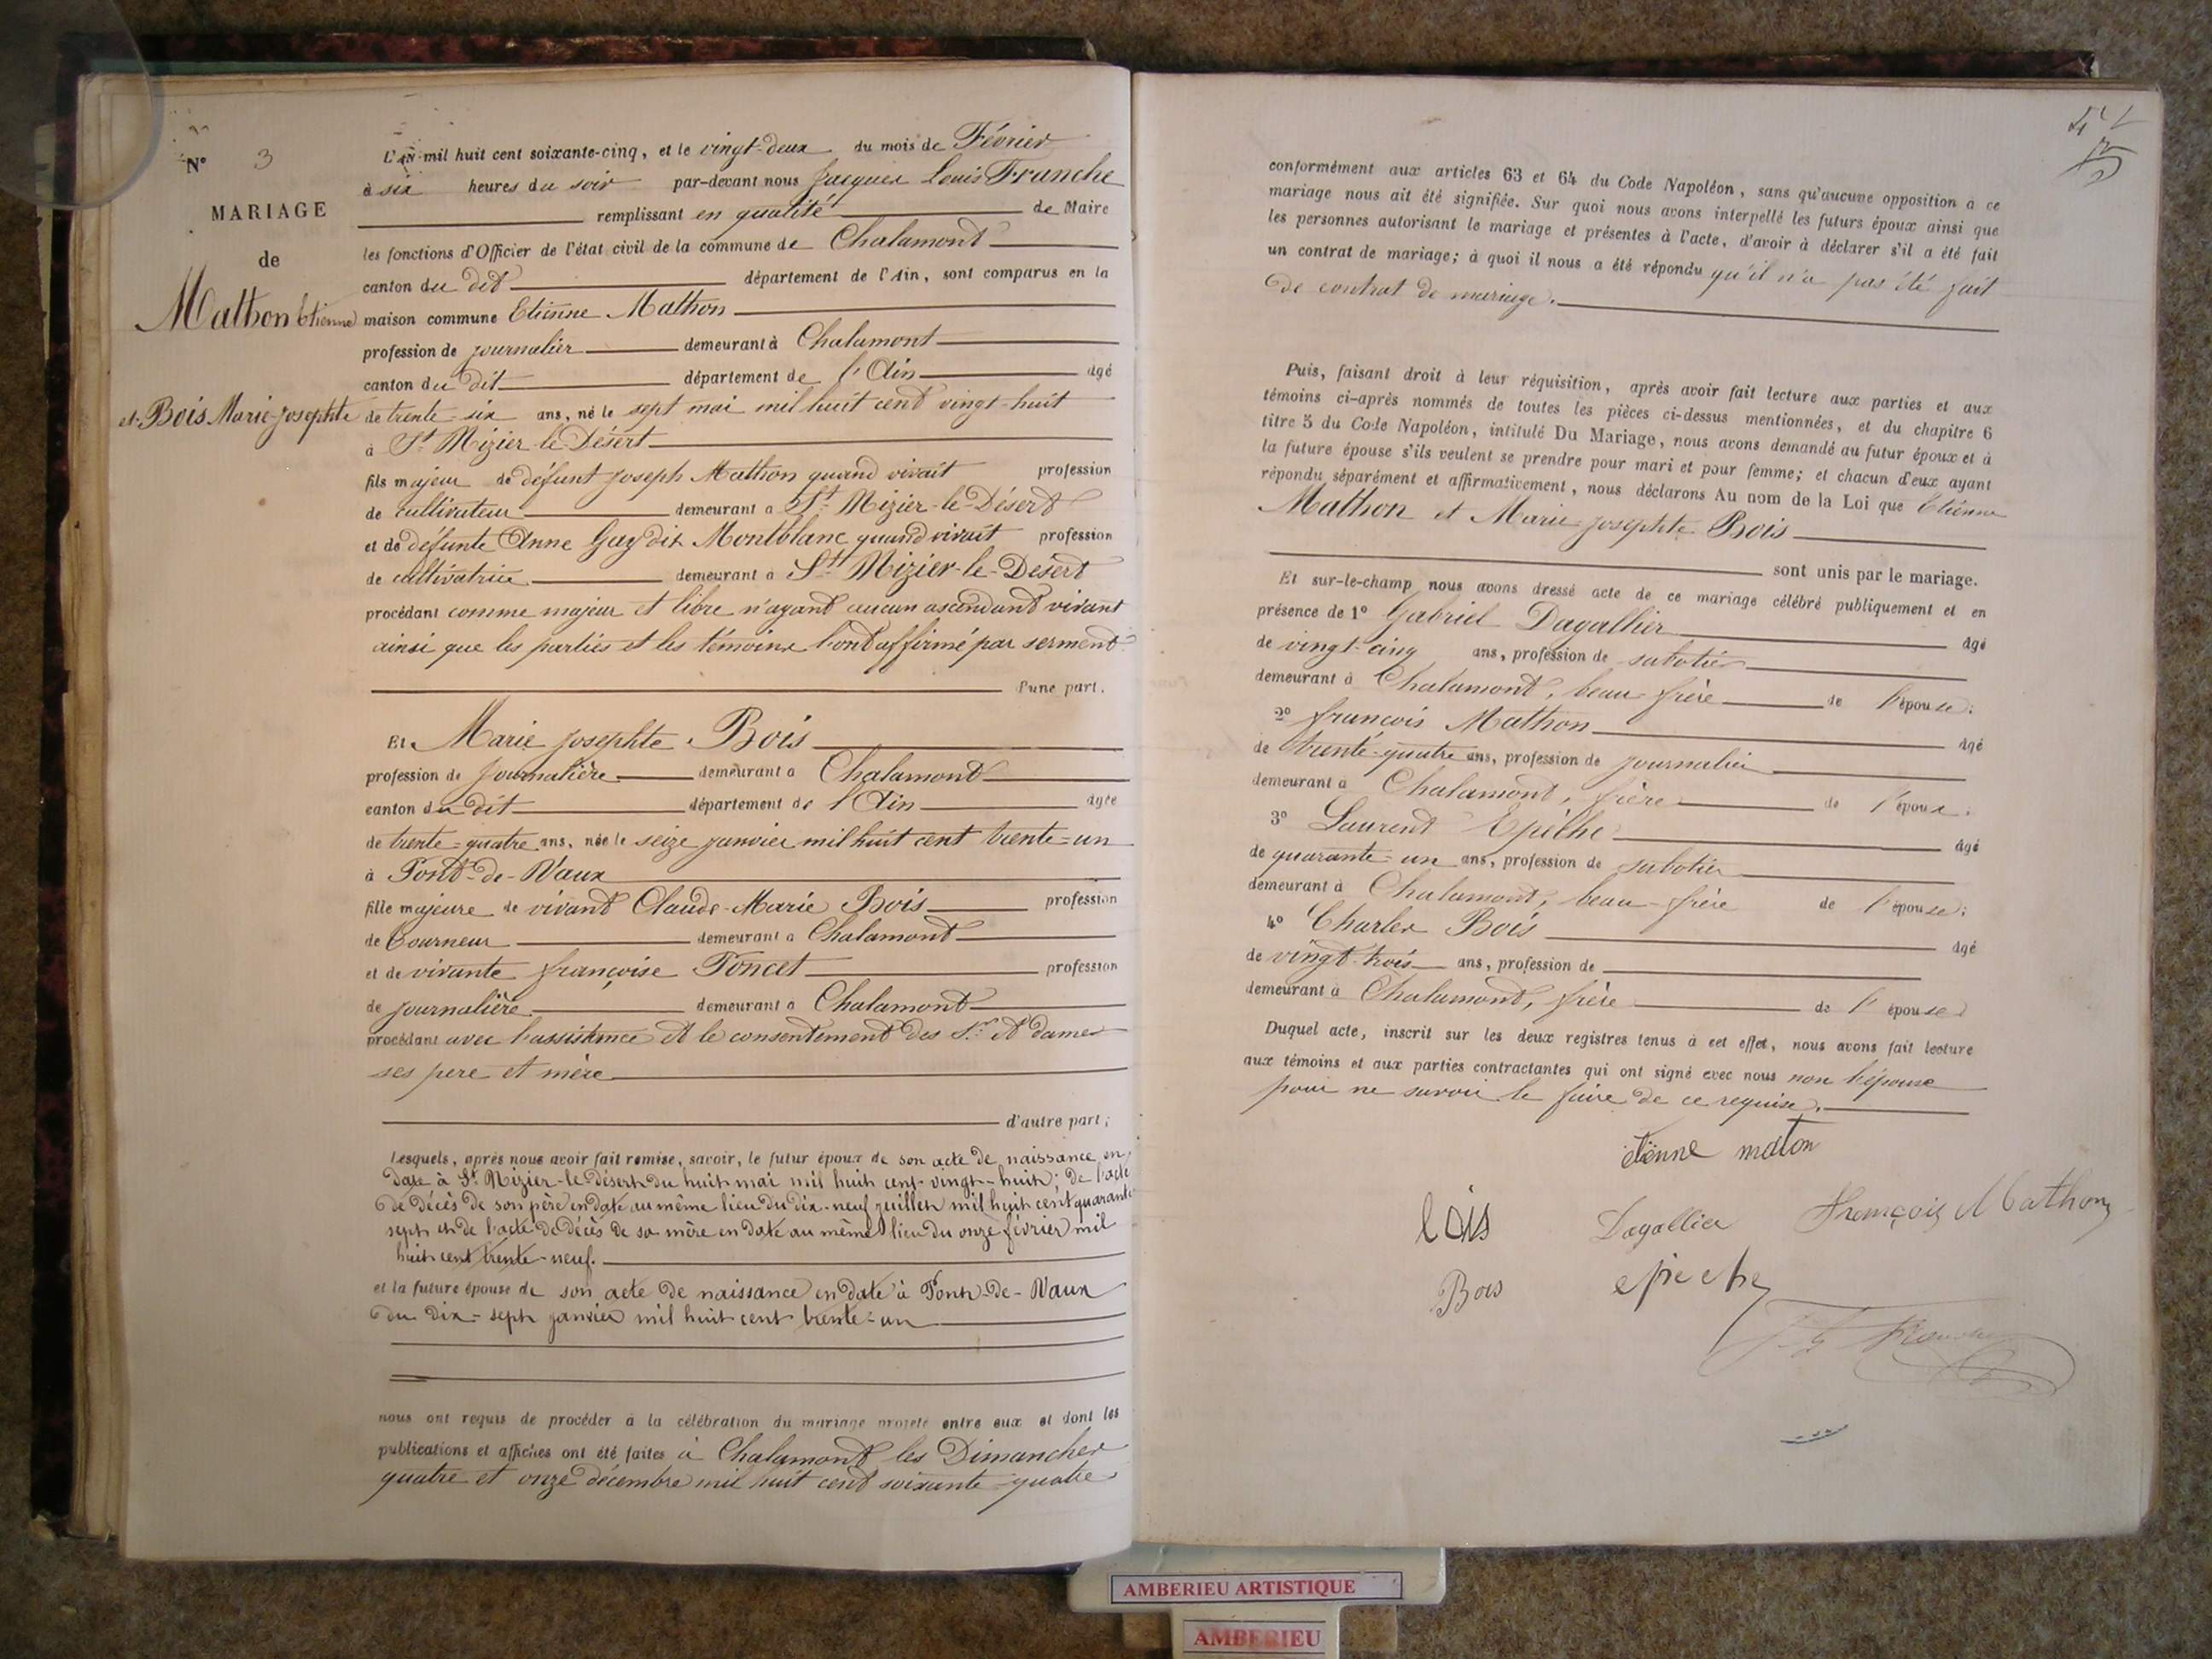 N° 3
MARIAGE
de
Mathon Etienne
et Bois Marie-Josephte
L'An mil huit cent soixante-cinq, et le vingt-deux du mois de Février
à six heures du soir par-devant nous Jacques Louis Franche
remplissant en qualité de Maire
les fonctions d'Officier de l'état civil de la commune de Chalamont
canton du dit département de l'Ain, sont comparus en la
maison commune Etienne Mathon
profession de journalier demeurant à Chalamont
canton du dit département de l'Ain âgé
de trente-six ans, né le sept mai mil huit cent vingt-huit
à St Nizier-le-Désert
fils majeur de défunt Joseph Mathon quand vivait profession
de cultivateur demeurant à St Nizier-le-Désert
et de défunte Anne Gay dit Montblanc quand vivait profession
de cultivatrice demeurant à St Nizier-le-Désert
procédant comme majeur et libre n'ayant aucun ascendant vivant
ainsi que les parties et les témoins l'ont affirmé par serment
d'une part.
Et Marie Josephte Bois
profession de journalière demeurant à Chalamont
canton du dit département de l'Ain âgée
de trente-quatre ans, née le seize janvier mil huit cent trente-un
à Pont-de-Vaux
fille majeure de vivant Claude-Marie Bois profession
de tourneur demeurant à Chalamont
et de vivante françoise Poncet profession
de journalière demeurant à Chalamont
procédant avec l'assistance et le consentement des Sr et dame
ses père et mère
d'autre part;
Lesquels, après nous avoir fait remise, savoir, le futur époux de son acte de naissance en
date à St Nizier-le-désert du huit mai mil huit cent vingt-huit; de l'acte
de décès de son père en date au même lieu du dix-neuf juillet mil huit cent quarante
sept et de l'acte de décès de sa mère en date au même lieu du onze février mil
huit cent trente-neuf.
et la future épouse de son acte de naissance en date à Pont-de-Vaux
du dix-sept janvier mil huit cent trente-un
nous ont requis de procéder à la célébration du mariage projeté entre eux et dont les
publications et affiches ont été faites à Chalamont les Dimanches
quatre et onze décembre mil huit cent soixante-quatre
conformément aux articles 63 et 64 du Code Napoléon, sans qu'aucune opposition à ce
mariage nous ait été signifiée. Sur quoi nous avons interpellé les futurs époux ainsi que
les personnes autorisant le mariage et présentes à l'acte, d'avoir à déclarer s'il a été fait
un contrat de mariage; à quoi il nous a été répondu qu'il n'a pas été fait
de contrat de mariage.
Puis, faisant droit à leur réquisition, après avoir fait lecture aux parties et aux
témoins ci-après nommés de toutes les pièces ci-dessus mentionnées, et du chapitre 6
titre 5 du Code Napoléon, intitulé Du Mariage, nous avons demandé au futur époux et à
la future épouse s'ils veulent se prendre pour mari et pour femme; et chacun d'eux ayant
répondu séparément et affirmativement, nous déclarons Au nom de la Loi que Etienne
Mathon et Marie Josephte Bois
sont unis par le mariage.
Et sur-le-champ nous avons dressé acte de ce mariage célébré publiquement et en
présence de 1° Gabriel Dagallier âgé
de vingt-cinq ans, profession de sabotier
demeurant à Chalamont, beau-frère de l'épouse;
2° françois Mathon âgé
de trente-quatre ans, profession de journalier
demeurant à Chalamont, frère de l'époux.
3° Laurent Epèche âgé
de quarante-un ans, profession de sabotier
demeurant à Chalamont, beau-frère de l'épouse;
4° Charles Bois âgé
de vingt-trois ans, profession de
demeurant à Chalamont, frère de l'épouse
Duquel acte, inscrit sur les deux registres tenus à cet effet, nous avons fait lecture
aux témoins et aux parties contractantes qui ont signé avec nous non l'épouse
pour ne savoir le faire de ce requise.
étienne maton
bois Dagallier François Mathon
Bois epeche
AMBERIEU ARTISTIQUE
AMBERIEU